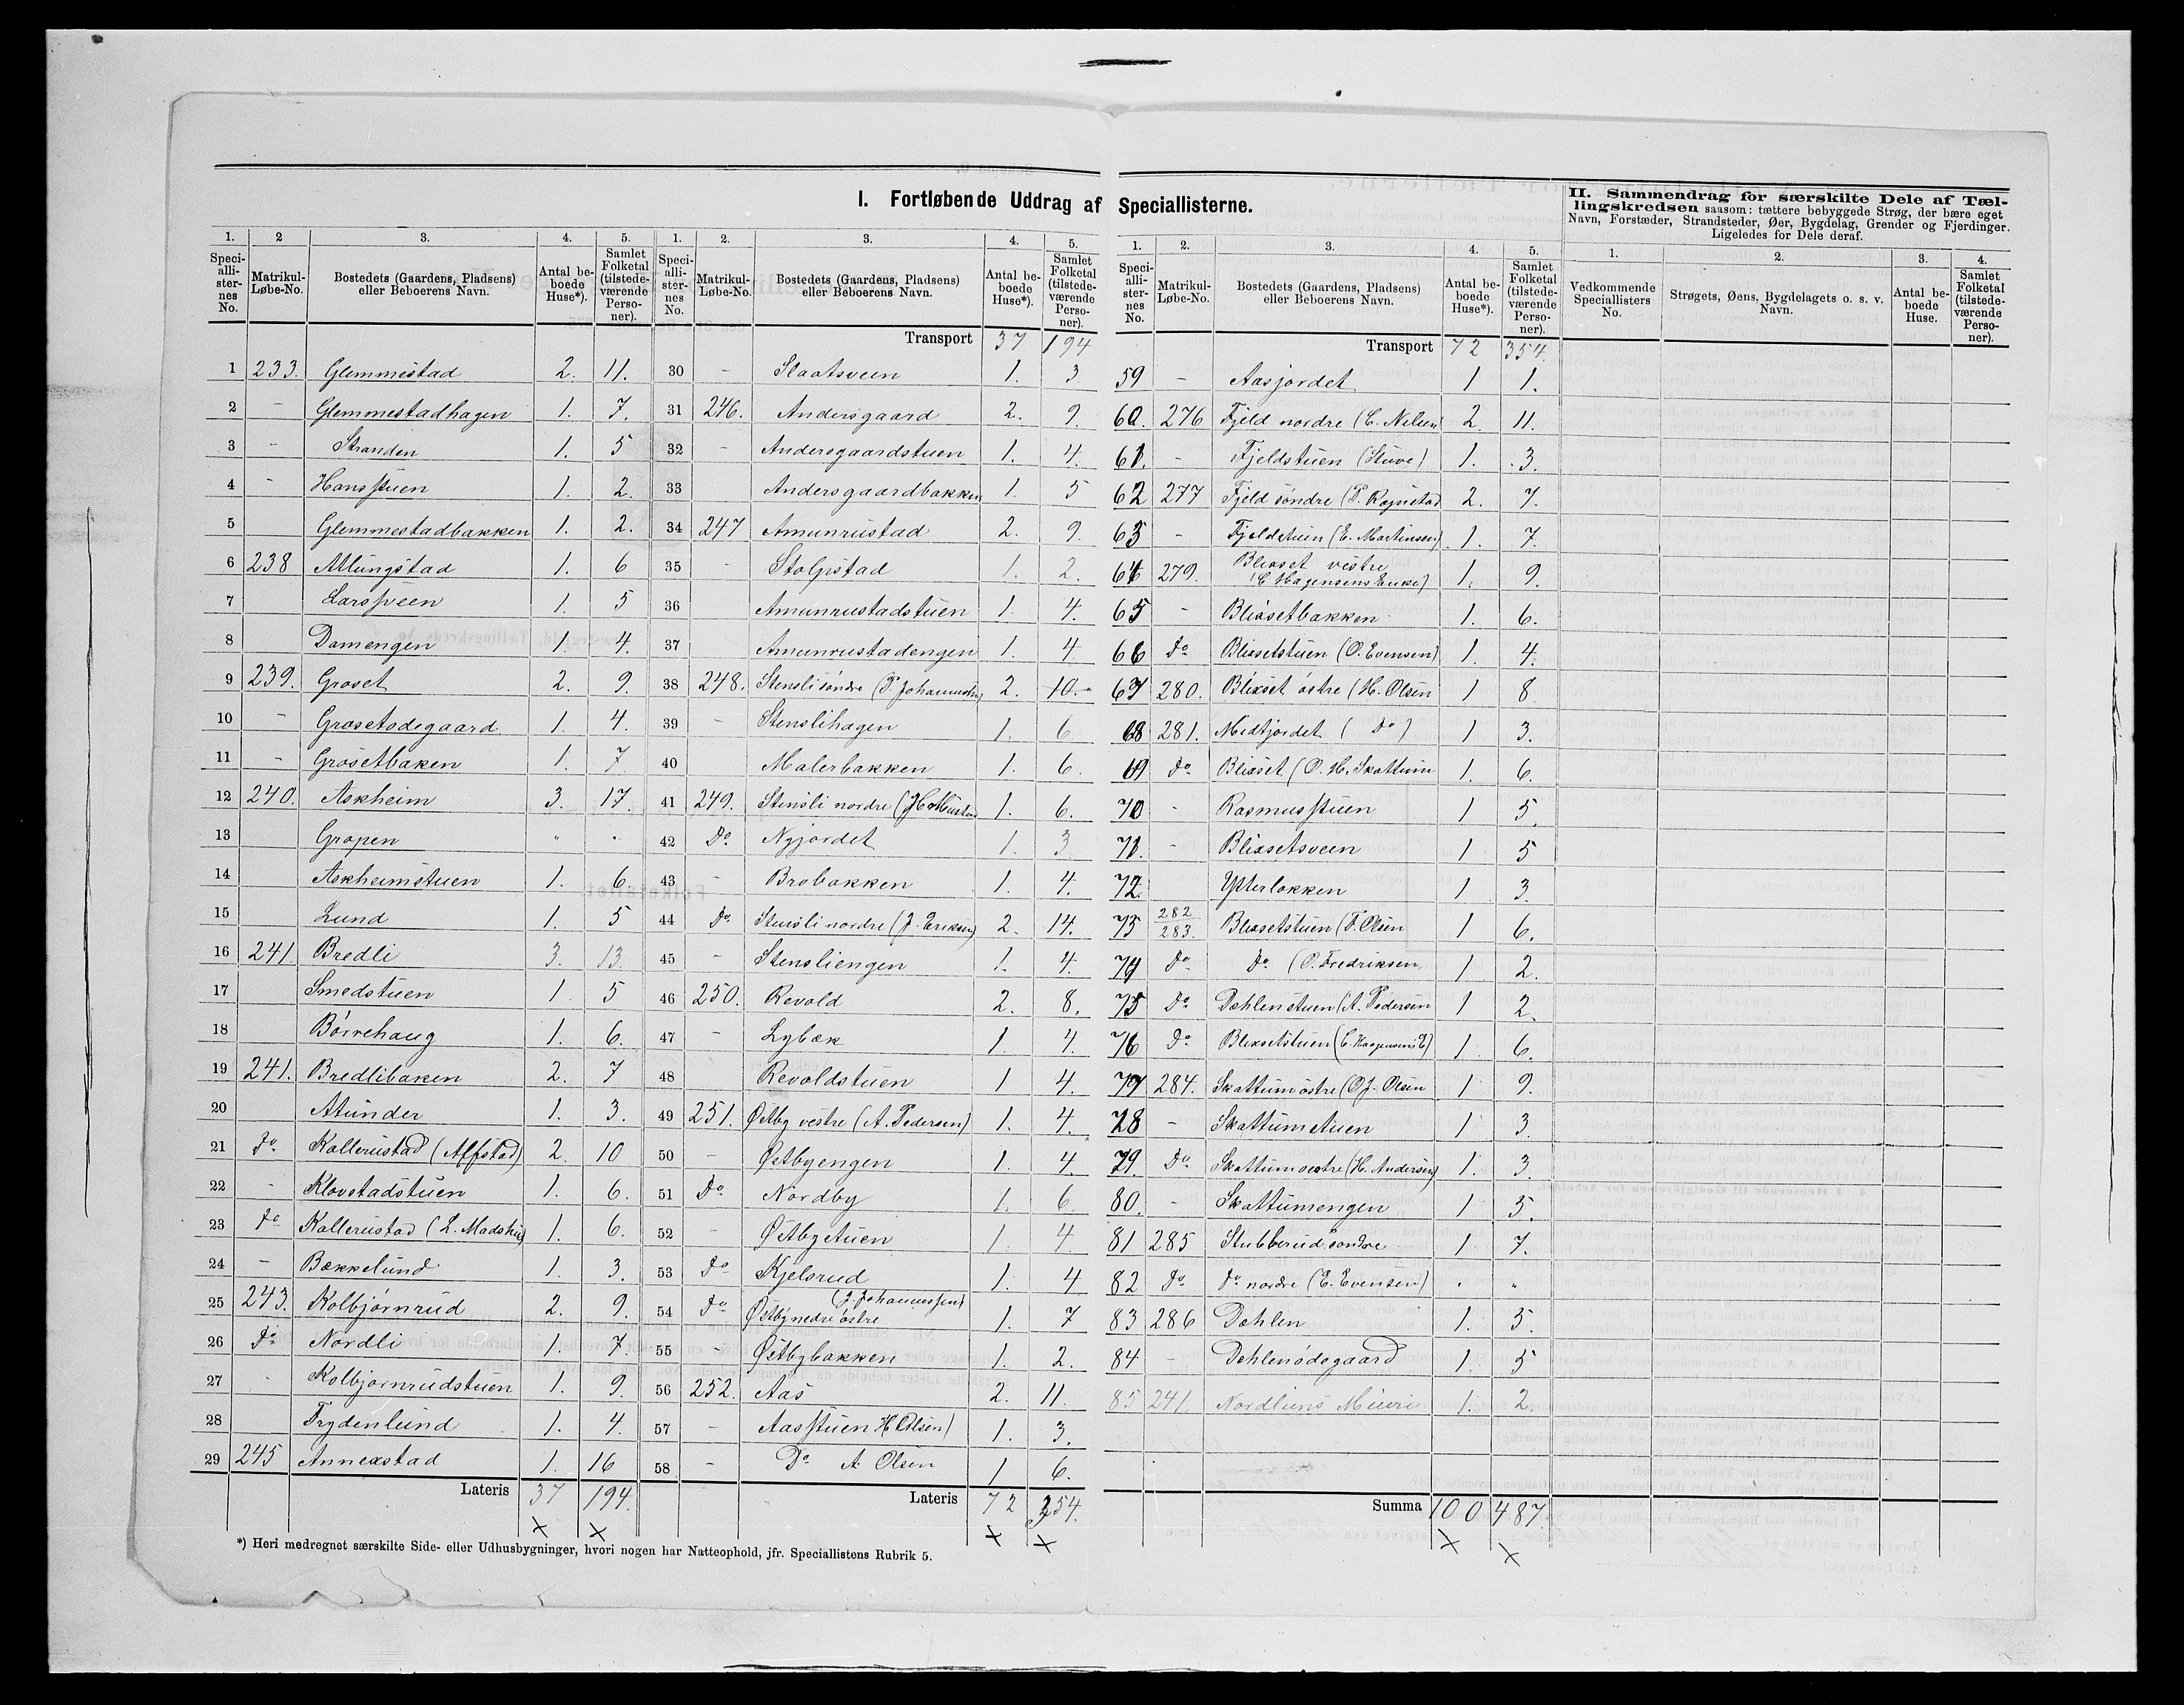 I. Fortløbende Uddrag af Speciallisterne.
II. Sammendrag for særskilte Dele af Tæl-
lingskredsen saasom: tættere bebyggede Strøg, der bære eget
Navn, Forstæder, Strandsteder, Øer, Bygdelag, Grender og Fjerdinger.
Ligeledes for Dele deraf.
1. 2 3. 4. 5.
Speci-alli-ster-nes No. Matrikul-Løbe-No. Bostedets (Gaardens, Pladsens) eller Beboerens Navn. Antal be-boede Huse*). Samlet Folketal (tilstede-værende Perso-ner).
1 233. Glemmestad 2. 11.
2 - Glemmestadhagen 1. 7.
3 - Stranden 1. 5
4 - Hansstuen 1. 2.
5 Glemmestadbakken 1. 2.
6 238 Allungstad 1. 6
7 Larsveen 1. 5
8 Damengen 1. 4.
9 239. Groset 2. 9.
10 - Grosetødegaard 1. 4.
11 - Grosetbaken 1. 7
12 240. Askheim 3. 17.
13 Gropen " "
14 Askheimstuen 1. 6.
15 Lund 1. 5
16 241 Bredli 3. 13.
17 Smedstuen 1 5
18 Børrehaug 1. 6.
19 241. Bredlibaken 2. 7
20 Atunder 1. 3.
21 Do Kallerustad (Alfstad) 2. 10
22 - Klovstadstuen 1. 6.
23 Do Kallerustad (L. Madshus) 1. 6.
24 - Bækkelund 1. 3.
25 243. Kolbjørnrud 2. 9.
26 Do Nordli 1. 7.
27 - Kolbjørnrudstuen 1. 9.
28 Frydenlund 1. 4.
29 245 Annexstad 1. 16
Lateris 37 194.
1. 2. 3. 4. 5.
Speci-alli-ster-nes No. Matrikul-Løbe-No. Bostedets (Gaardens, Pladsens) eller Beboerens Navn. Antal be-boede Huse*). Samlet Folketal (tilstede-værende Perso-ner).
Transport 37 194
30 - Slaatsveen 1. 3
31 246. Andersgaard 2. 9.
32 - Andersgaardstuen 1. 4.
33 Andersgaardbakken 1. 5
34 247 Amunrustad 2. 9.
35 - Stolpstad 1. 2.
36 Amunrustadstuen 1. 4.
37 Amunrustadengen 1. 4
38 248. Stensli søndre (P. Johannesen) 2. 10.
39 - Stenslihagen 1. 6
40 Malerbakken 1. 6.
41 249. Stensli nordre 1. 6.
42 Do Nyjordet 1. 3
43 - Brobakken 1. 4.
44 Do Stensli nordre (J. Eriksen) 2. 14.
45 - Stensliengen 1. 4.
46 250. Revold 2. 8.
47 - Lybæk 1. 4.
48 Revoldstuen 1 4.
49 251. Østby vestre (A. Pedersen) 1. 4.
50 - Østbyengen 1. 4.
51 Do Nordby 1. 6
52 - Østbystuen 1. 4
53 Do Kjelsrud 1. 4
54 Do Østby nedre østre (J. Johannessen) 1. 7
55 - Østbybakken 1. 2.
56 252. Aas 2. 11.
57 - Aasstuen H Olsen) 1. 3.
58 - Do A Olsen 1 6.
Lateris 72 354.
1. 2. 3. 4. 5.
Speci-alli-ster-nes No. Matrikul-Løbe-No. Bostedets (Gaardens, Pladsens) eller Beboerens Navn. Antal be-boede Huse*). Samlet Folketal (tilstede-værende Perso-ner).
Transport 72 354.
59 - Aasjordet 1 1.
60. 276 Fjeld nordre (C. Nilsen) 2. 11.
61. - Fjeldstuen (Stuve) 1. 3.
62 277 Fjeld søndre (P. Rognstad 2. 7.
63 - Fjeldstuen (E. Martinsen) 1. 7.
64 279. Blixset vestre (C Hagensens Enke) 1. 9.
65 - Blixsetbakken 1. 6.
66 Do Blixsetstuen (O. Evensen) 1. 4.
67 280. Blixset østre (H. Olsen 1 8
68 281. Midtjordet ( Do ) 1 3.
69 Do Blixset (O. H. Skattum 1. 6.
70 - Rasmusstuen 1 5.
71. - Blixsetsveen 1 5
72. Ytterløkken 1 3.
73 282 283. Blixsetstuen (F. Olsen 1 6.
74 Do Do (O. Fredriksen 1 2.
75 Do Dæhlenstuen (A. Pedersen 1 2.
76 Do Blixsetstuen (C. Haagensens E) 1. 6.
77 284. Skattum østre (O. J. Olsen 1 9.
78 - Skattumstuen 1 3
79. Do Skattum østre (H. Andersen) 1. 3.
80. - Skattumengen 1 5.
81 285 Stubberud søndre 1 7.
82 Do Do nordre (E. Evensen) " "
83 286 Dæhlen 1. 5.
84 - Dehlenødegaard 1. 5
85 241. Nordliens 1. 2.
Summa 100 487.
1. 2. 3. 4.
Vedkommende Speciallisters No. Strøgets, Øens, Bygdelagets o. s. v. Navn. Antal be-boede Huse. Samlet Folketal (tilstede-værende Perso-ner).
*) Heri medregnet særskilte Side- eller Udhusbygninger, hvori nogen har Natteophold, jfr. Speciallistens Rubrik 5.